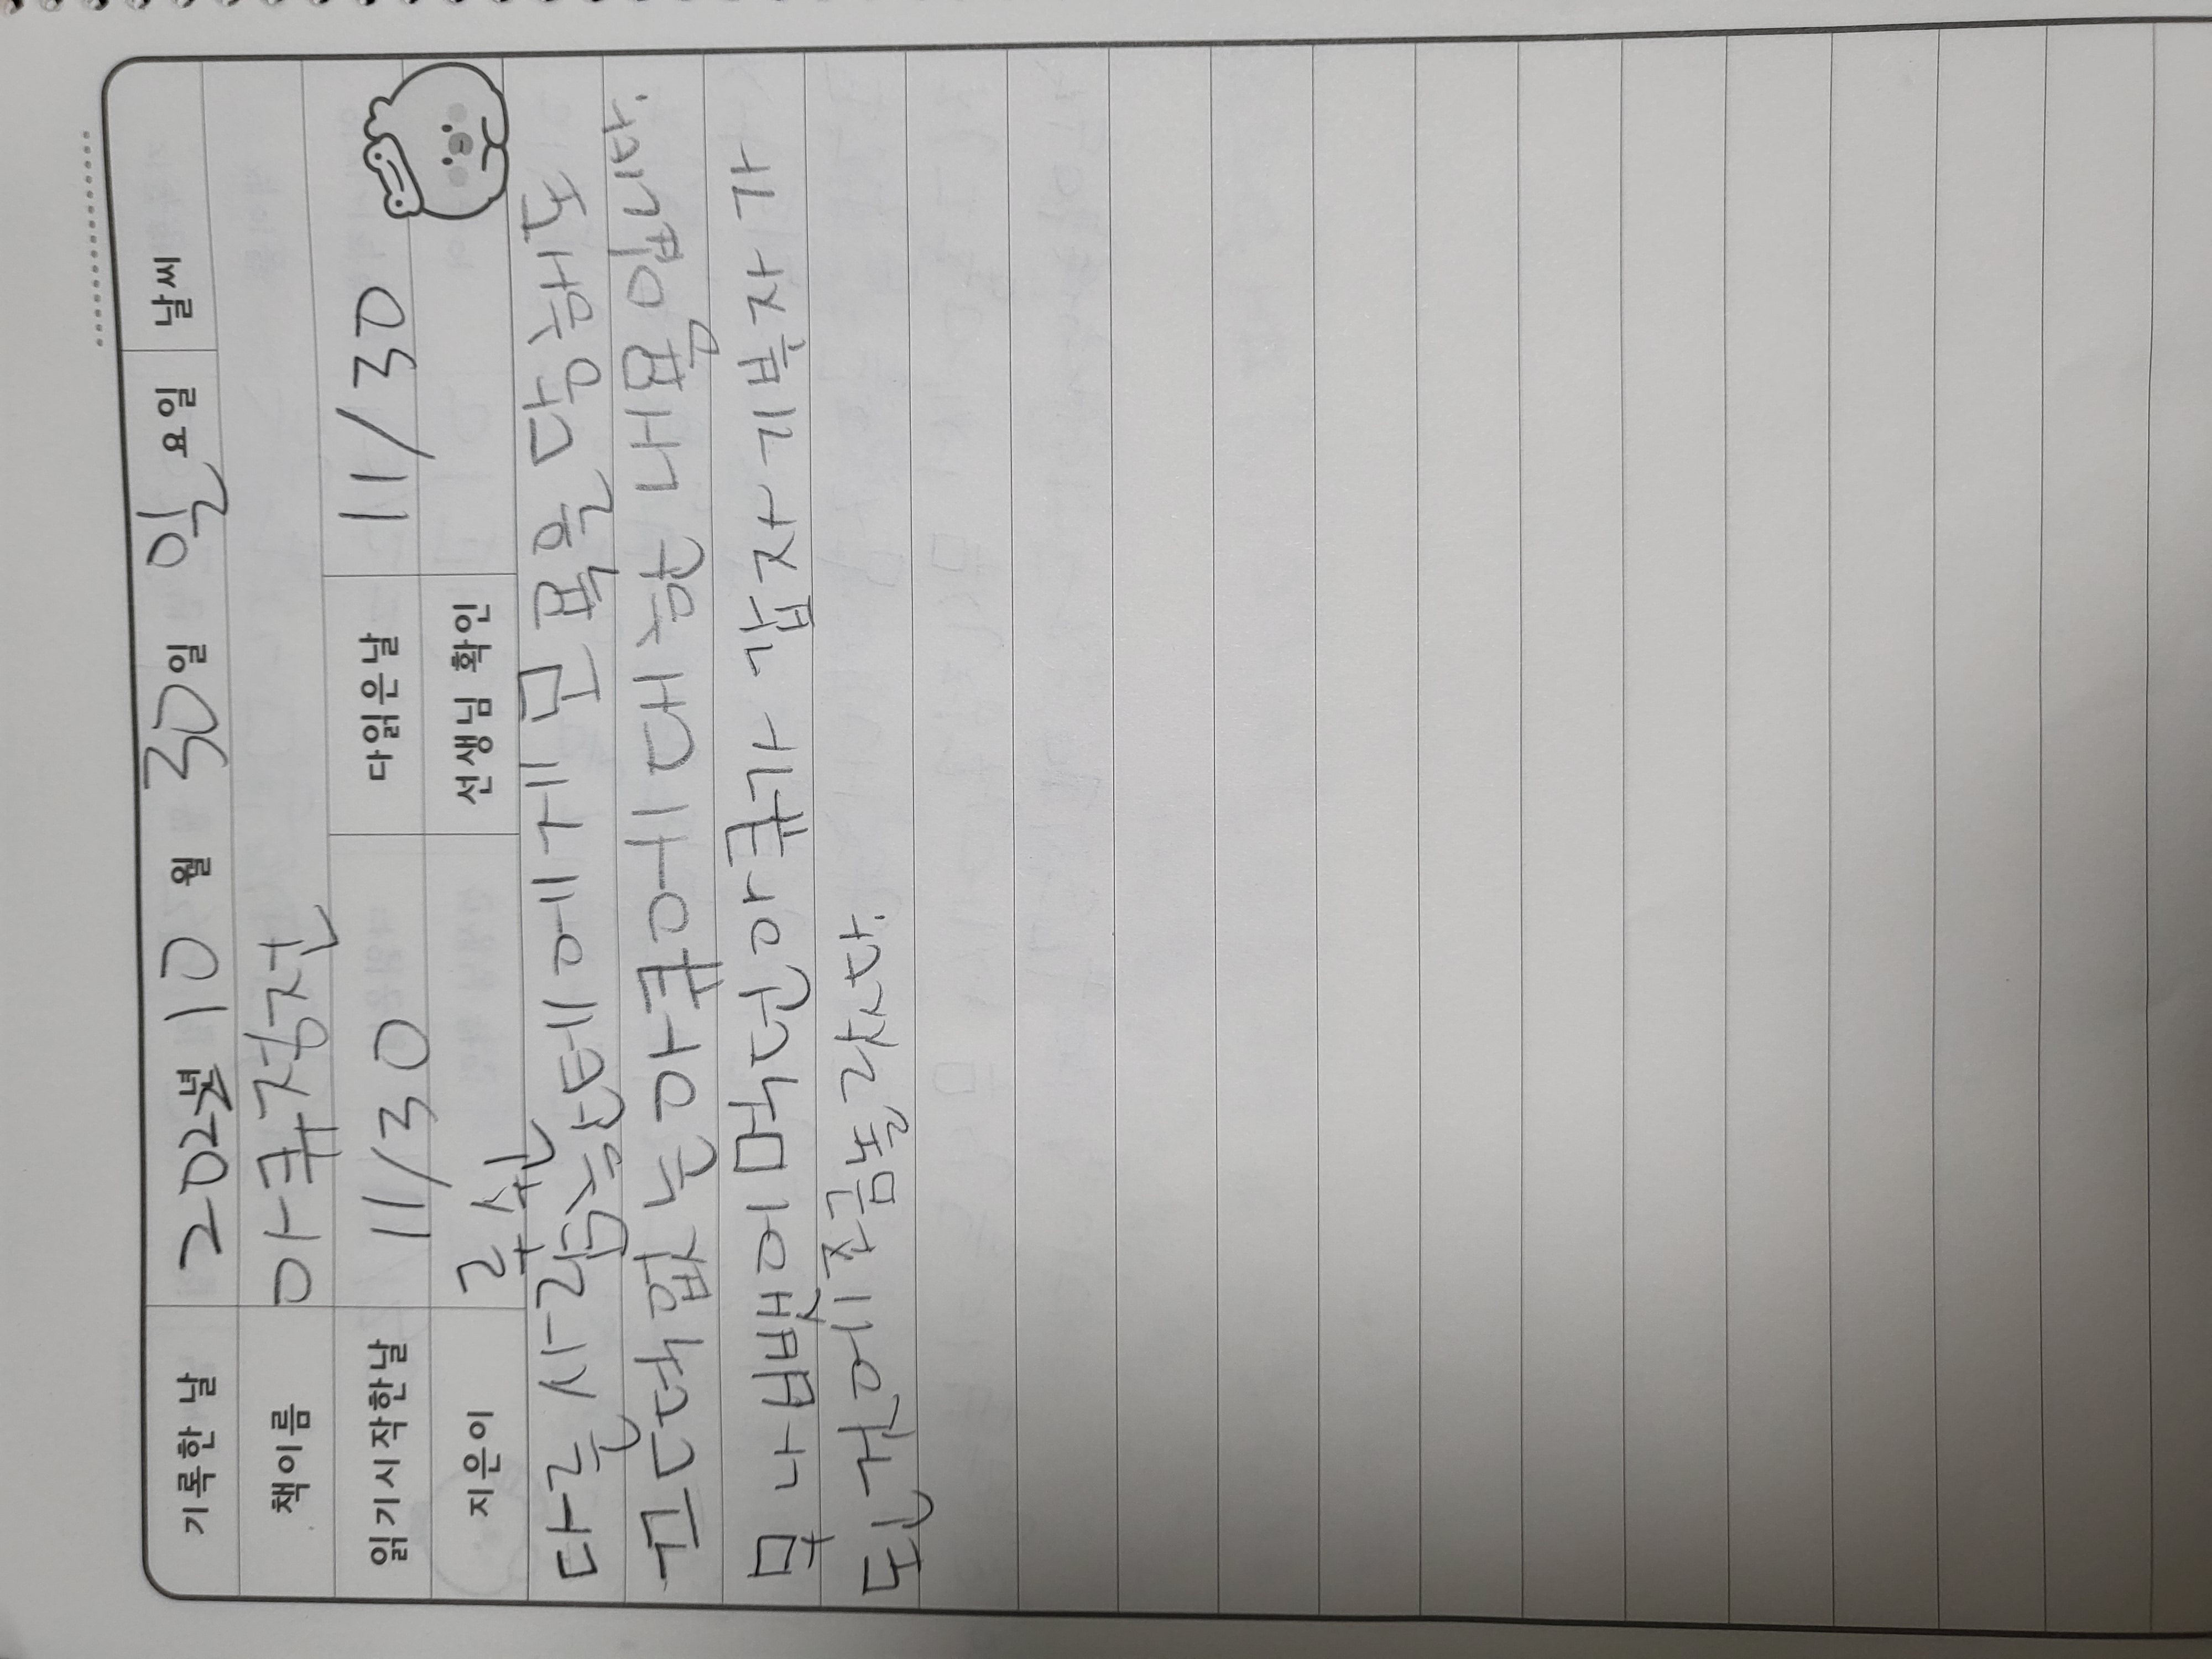 기록한 날 2022년 10월 30일 일요일 날씨
책이름 아큐정전
읽기시작한날 11/30 다읽은날 11/30
지은이 루쉰 선생님 확인
다른 사람한테에게 모욕을 당해도
끄떡없는 아큐에 대한 내용입니다.
무나 빼앗어 먹던 아큐가 갑자기 부자가
된 것에 조금 놀랐다.